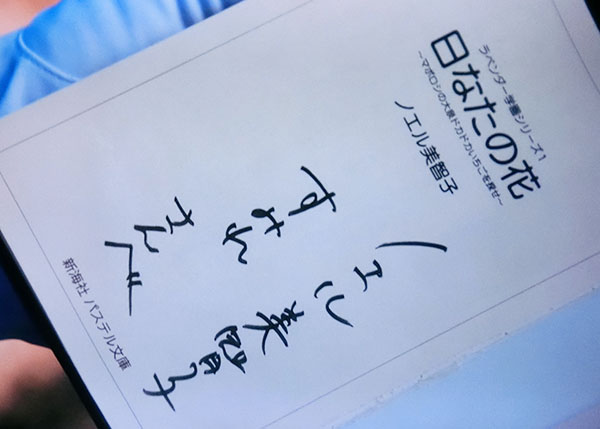 ラベンダー学園シリーズ1
日なたの花
~マボロシの ドカドカいちごを探せ~
ノエル美智子
すみれ
さんへ
ノエル美智子
新海社 パステル文庫